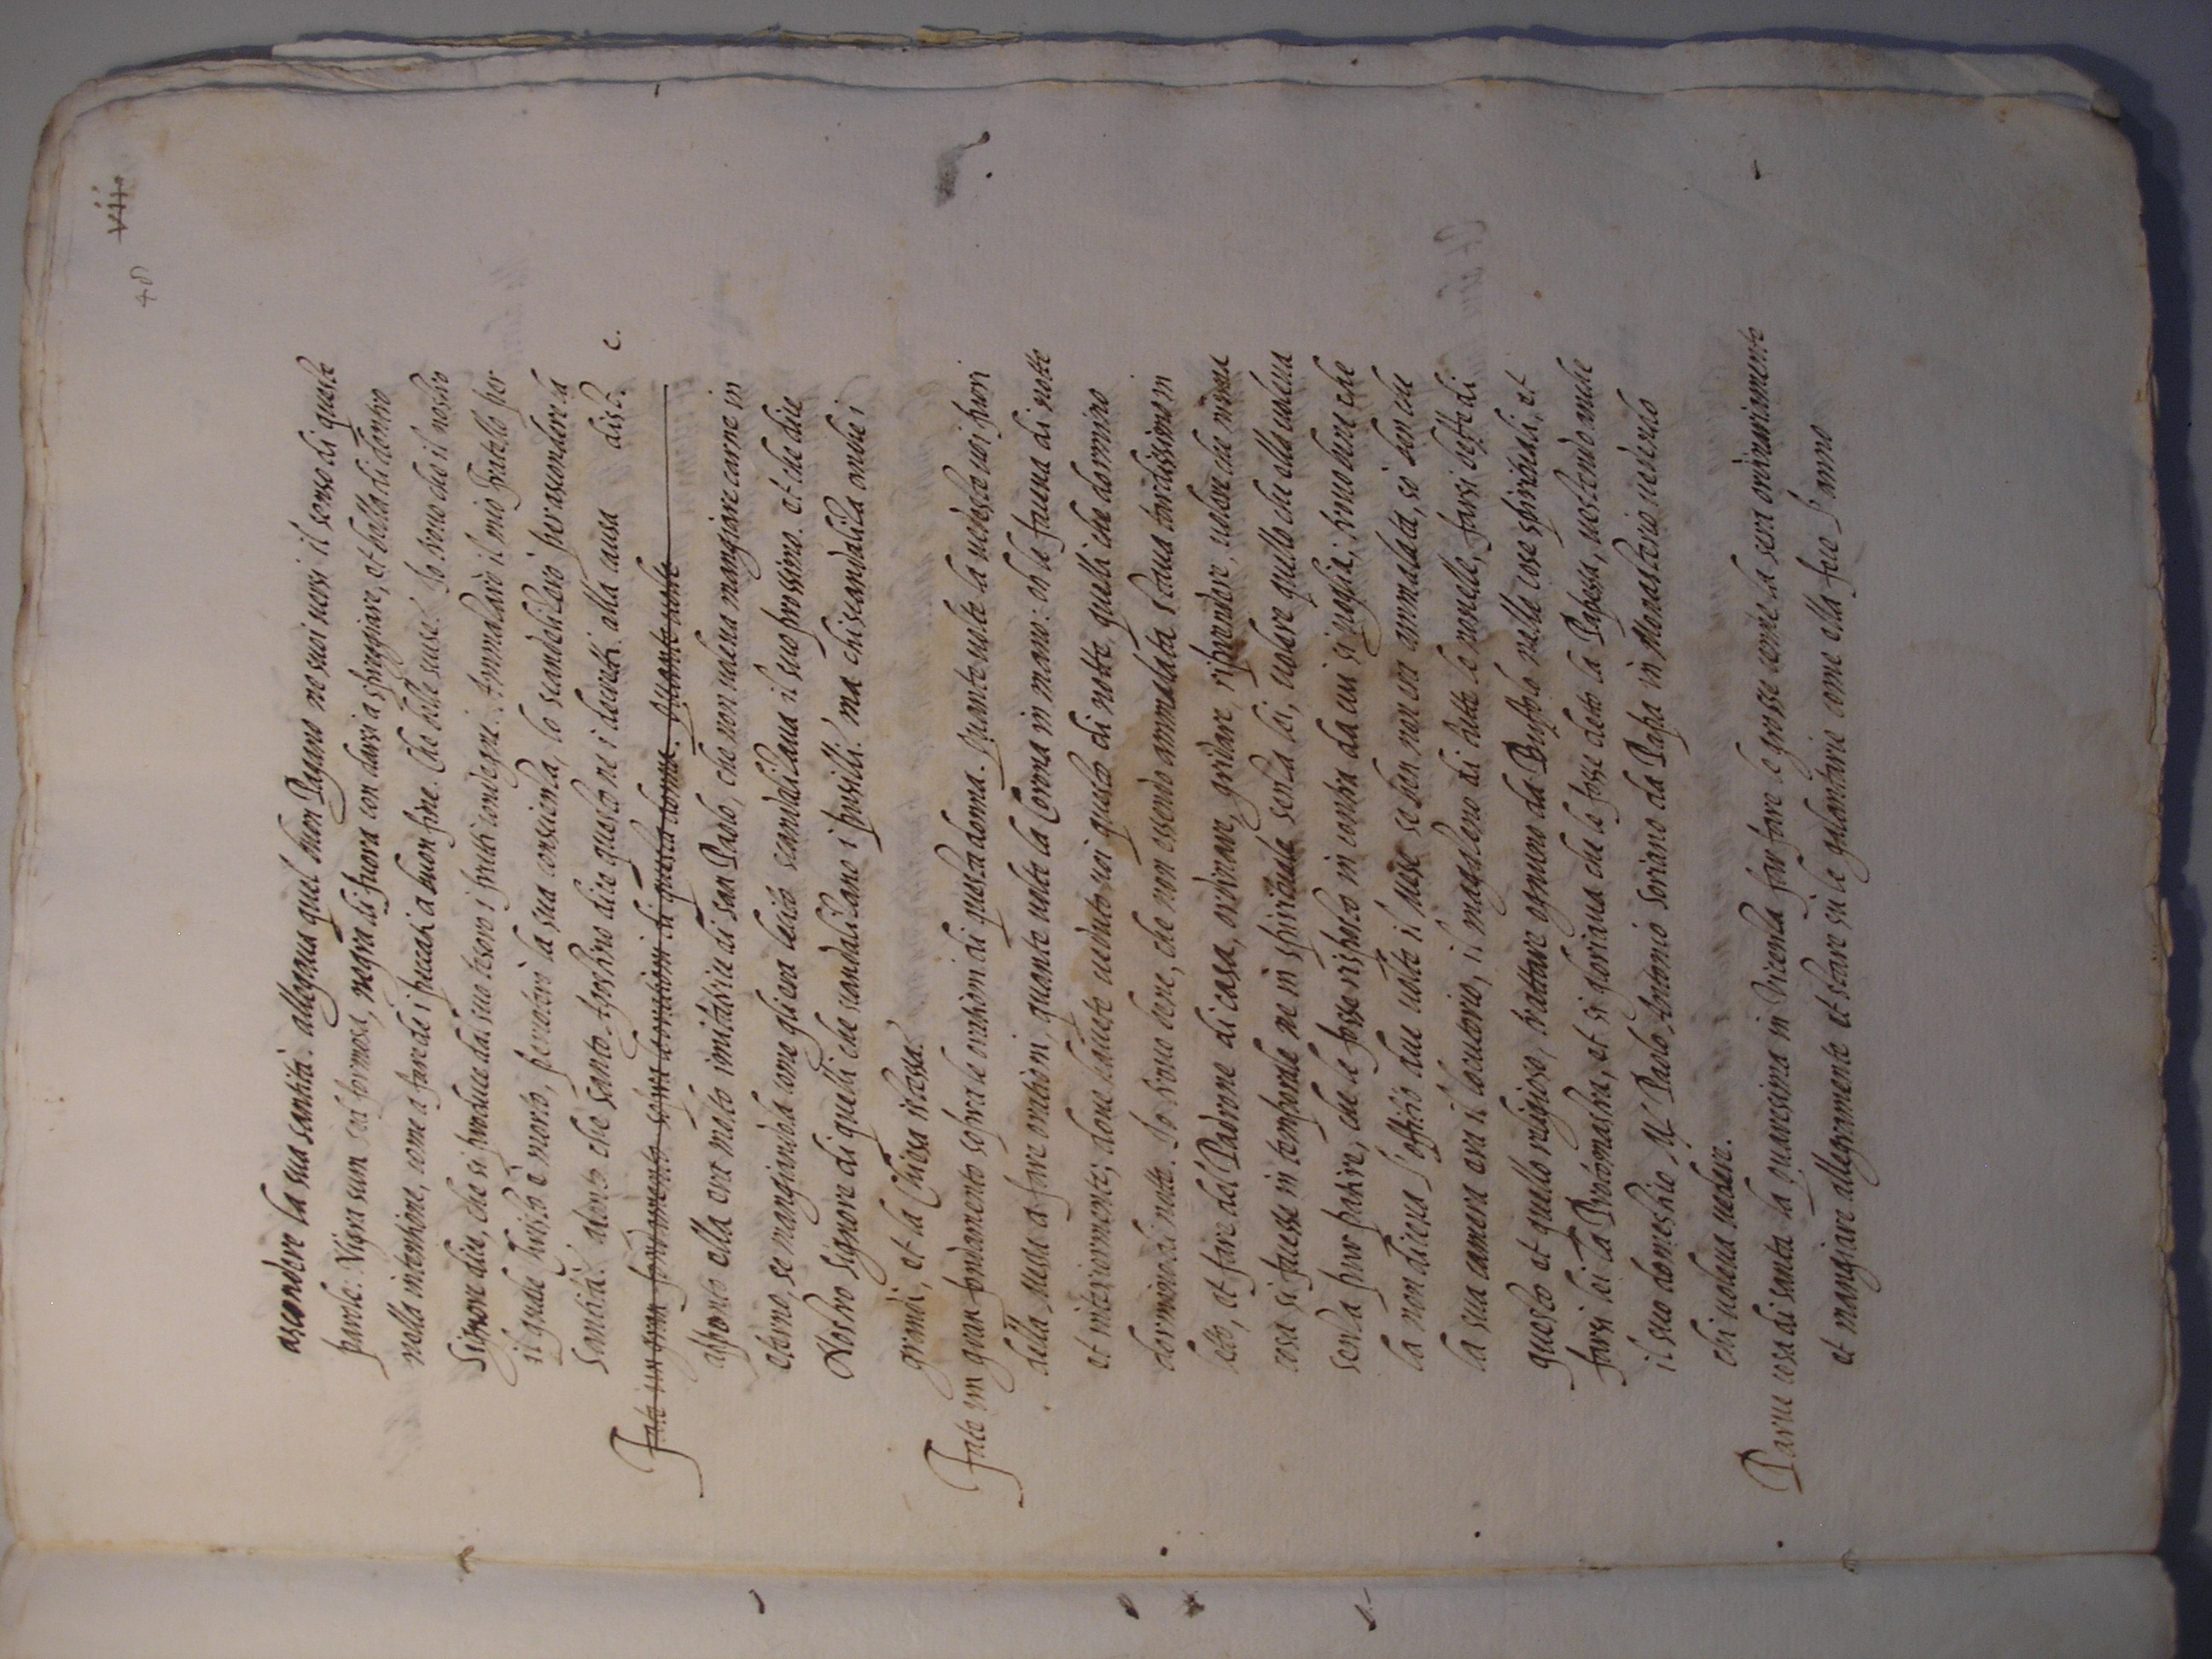 vii
48
ascondere la sua santità. allegaua quel buon Pagano ne suoi uersi il senso di queste
parole. Nigra sum sed formosa, negra di fuora con darsi a spregiare, et bella di dentro
nella intentione, come a fare de i peccati a buon fine. Che belle scuse. Io trouo che il nostro
Signore dice, che si produce dal suo tesoro i frutti condegni. Ammalarò il mio fratello per
il quale Christo è morto, percoterò la sua conscienza, lo scandelizarò per ascondere la
Santità. alento che santo Agostino dice questo ne i decretti alla causa dist. c.
Fate un gran fondamento sopra le orationi di questa donna. Quante uolte
apponto ella era molto imitatrice di san Paolo, che non uoleua mangiare carne in
eterno, se mangiandola come gli era lecito scandalizaua il suo prossimo. et che dice
Nostro Signore di quelli che scandalizano i pusilli. ma chi scandaliza anche i
grandi, et la Chiesa istessa.
Fate un gran fondamento sopra le orationi di questa donna. quante uolte la uedeste uoi fuori
della messa a fare orationi, quante uolte la Corona in mano. oh le faceua di notte
et interiormente; doue hauete ueduto uoi questo di notte, quelli che dormino
dormino di notte. Io trouo bene, che non essendo ammalata staua tardissimo in
letto, et fare del Padrone di casa, ordinare, gridare, riprendere, uolere che niuna
cosa si facesse in temporale ne in spirituale senza lei, uolere quello che ella uoleua
senza puor patire, che le fosse risposto in contra da cui si uoglia; trouo bene che
la non diceua l'officio due uolte il mese se ben non era ammalata, so ben che
la sua camera era il locutorio, il magaleno di tutte le nouelle, farsi beffe di
questo et quello religioso, trattare ognuno da Buffolo nelle cose spirituali, et
farsi lei la Protomastra, et si gloriaua che le fosse detto la Papessa, uestendo anche
il suo domestico M Paolo Antonio soriano da Papa in Monasterio uedendo
chi uoleua uedere.
Parue cosa di santa la quaresima in Vicenza far fare le grosse cene la sera ordinariamente
et mangiare allegramente et stare su le galantarie come ella fece l'anno